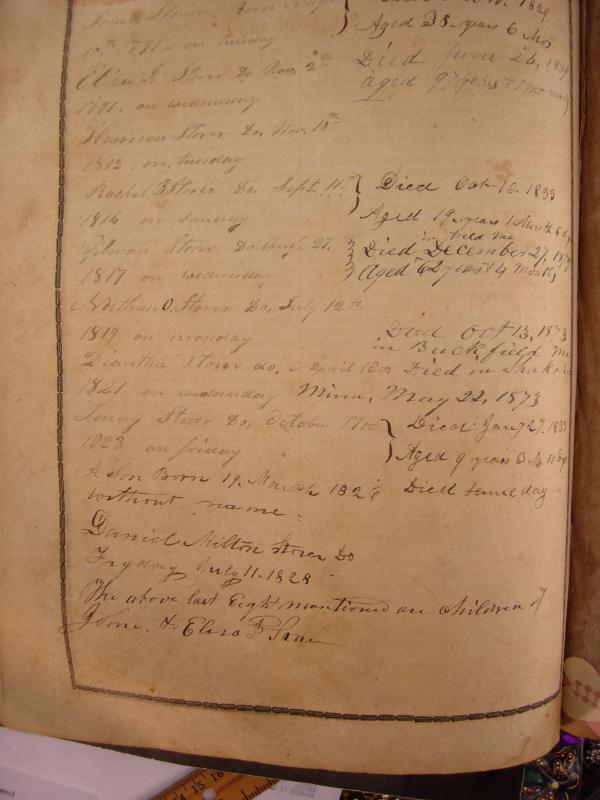 Storer Born
1829.
Aged 38 years 6 Mos
10th 1791 on tuesday
Died June 26, 1889
Eliza F. Storer Do. Nov. 2nd
aged 97 years 7 mo
1791. on wednesday
Harrison Storer Do. Nov. 10th
1812. on tuesday
Rachel E Storer Do. Sept. 11th } Died Oct. 16. 1833
1814 on sunday Aged 19. years 1 Month 5 dys
Gilman Storer Do. Aug. 27. } Died December 27, 187
1817 on wednesday } Aged 62 years & 4 Months
Nathan O. Storer Do. July 12th
1819 on monday Died Oct 13, 1873
in Buckfield Me
Diantha Storer do. April 18th Died in Shako
1821 on wednesday Minn, May 22, 1873
Jenny Storer Do. October 17th } Died Jany 27. 1833
1823 on friday Aged 9 years 3 M 10 dys
A Son Born 19. March 182 Died same day
without name.
Daniel Milton Storer Do
Fryday July 11. 1828
The above last Eight mentioned are children of
John. & Eliza F Storer
14 15 16